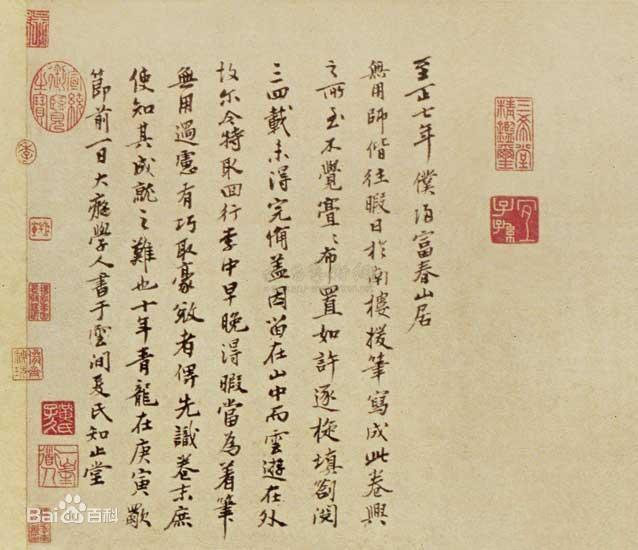 三希堂精鑑璽
宜子孫
至正七年僕歸富春山居
無用師偕往暇日於南樓援筆寫成此卷興
之所至不覺亹〻布置如許逐旋填劄閱
三四載未得完備蓋因留在山中而雲遊在外
故尔今特取回行李中早晚得暇當為着筆
無用過慮有巧取豪敓者俾先識卷末庶
使知其成就之難也十年青龍在庚寅歜
節前一日大癡學人書于雲間夏氏知止堂
宣統御覽之寶
黃氏子久
一峯道人
Bai百科